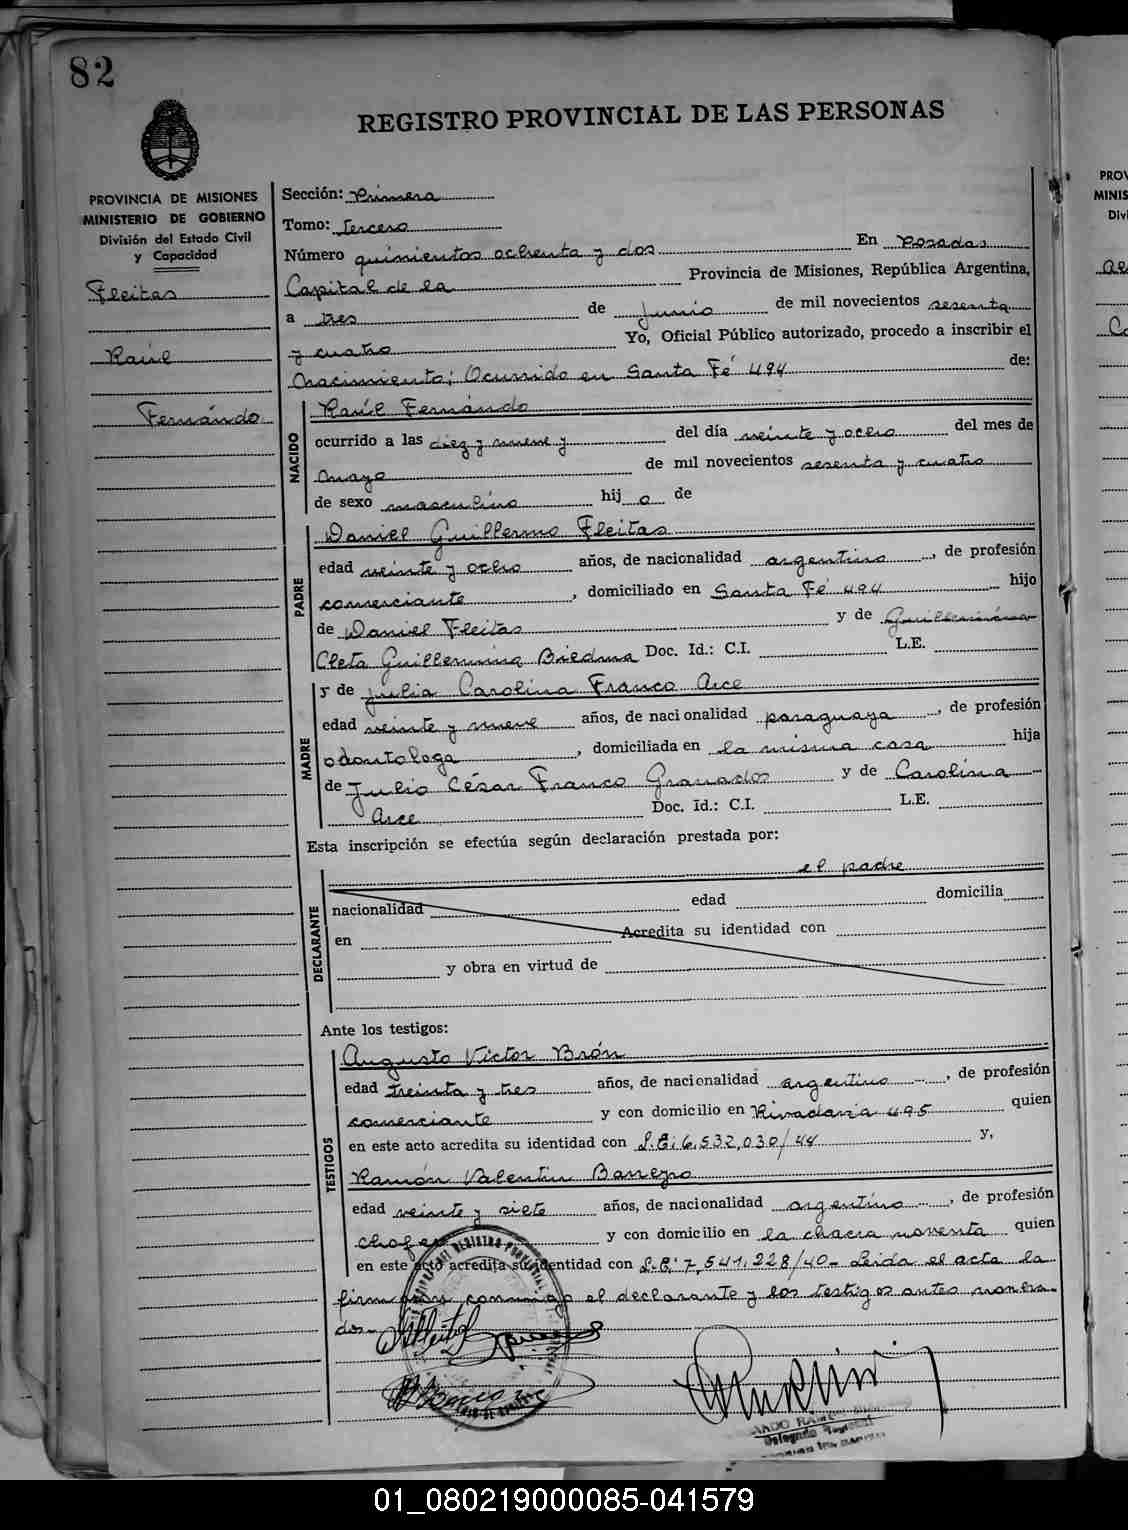 82
REGISTRO PROVINCIAL DE LAS PERSONAS
PROVINCIA DE MISIONES
MINISTERIO DE GOBIERNO
División del Estado Civil
y Capacidad
Fleitas
Raúl
Fernándo
Sección: Primera
Tomo: tercero
Número quinientos ochenta y dos En Posadas
Capital de la Provincia de Misiones, República Argentina,
a tres de Junio de mil novecientos sesenta
y cuatro Yo, Oficial Público autorizado, procedo a inscribir el
Nacimiento; Ocurrido en Santa Fé 494 de:
NACIDO
Raúl Fernándo
ocurrido a las diez y nueve y del día veinte y ocho del mes de
Mayo de mil novecientos sesenta y cuatro
de sexo masculino hij o de
PADRE
Daniel Guillermo Fleitas
edad veinte y ocho años, de nacionalidad argentino, de profesión
comerciante, domiciliado en Santa Fé 494 hijo
de Daniel Fleitas y de Guillermina
Cleta Guillermina Biedma Doc. Id.: C.I. L.E.
MADRE
y de Julia Carolina Franco Arce
edad veinte y nueve años, de nacionalidad paraguaya, de profesión
odontologa, domiciliada en la misma casa hija
de Julio César Franco Granados y de Carolina
Arce Doc. Id.: C.I. L.E.
Esta inscripción se efectúa según declaración prestada por:
DECLARANTE
el padre
nacionalidad edad domicilia
en Acredita su identidad con
y obra en virtud de
Ante los testigos:
TESTIGOS
Augusto Victor Brón
edad treinta y tres años, de nacionalidad argentino, de profesión
comerciante y con domicilio en Rivadavia 495 quien
en este acto acredita su identidad con L.E: 6,532,030/44 y,
Ramón Valentin Barreyro
edad veinte y siete años, de nacionalidad argentino, de profesión
chofer y con domicilio en la chacra noventa quien
en este acto acredita su identidad con L.E: 7,541,228/40- Leida el acta la
firman conmigo el declarante y los testigos antes nombra-
dos-
Delegado
PROV
MINIS
Divi
01_080219000085-041579